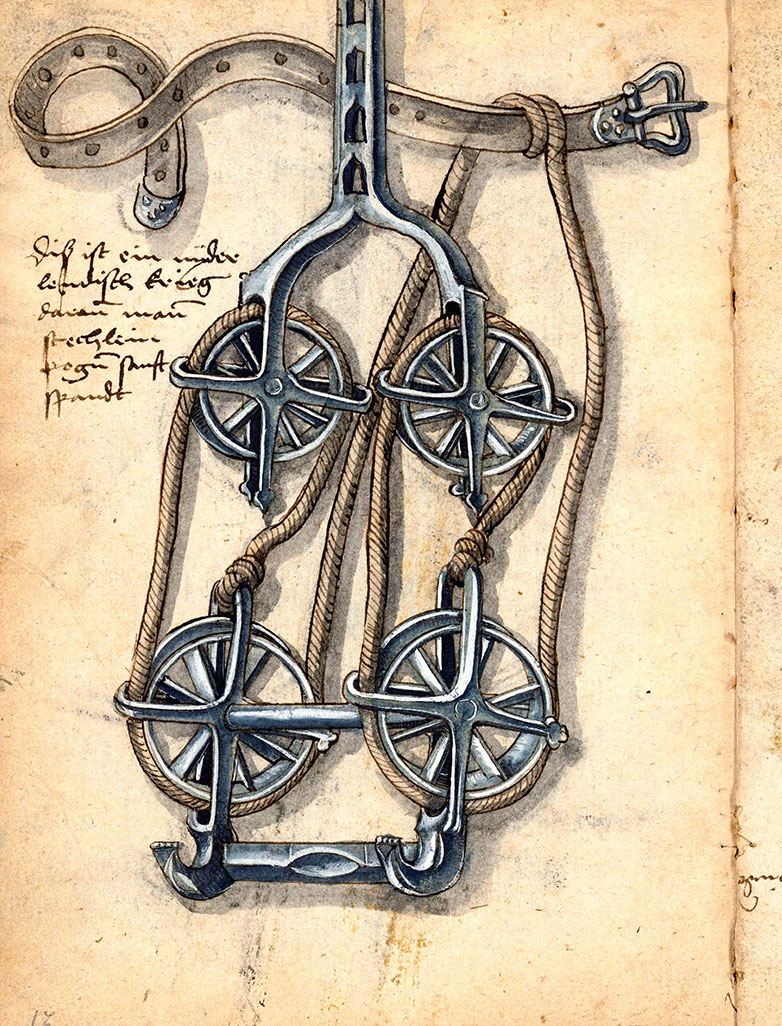 diß ist ein nider
lendisch krieg
daran man
stechlein
pogn sanft
spandt